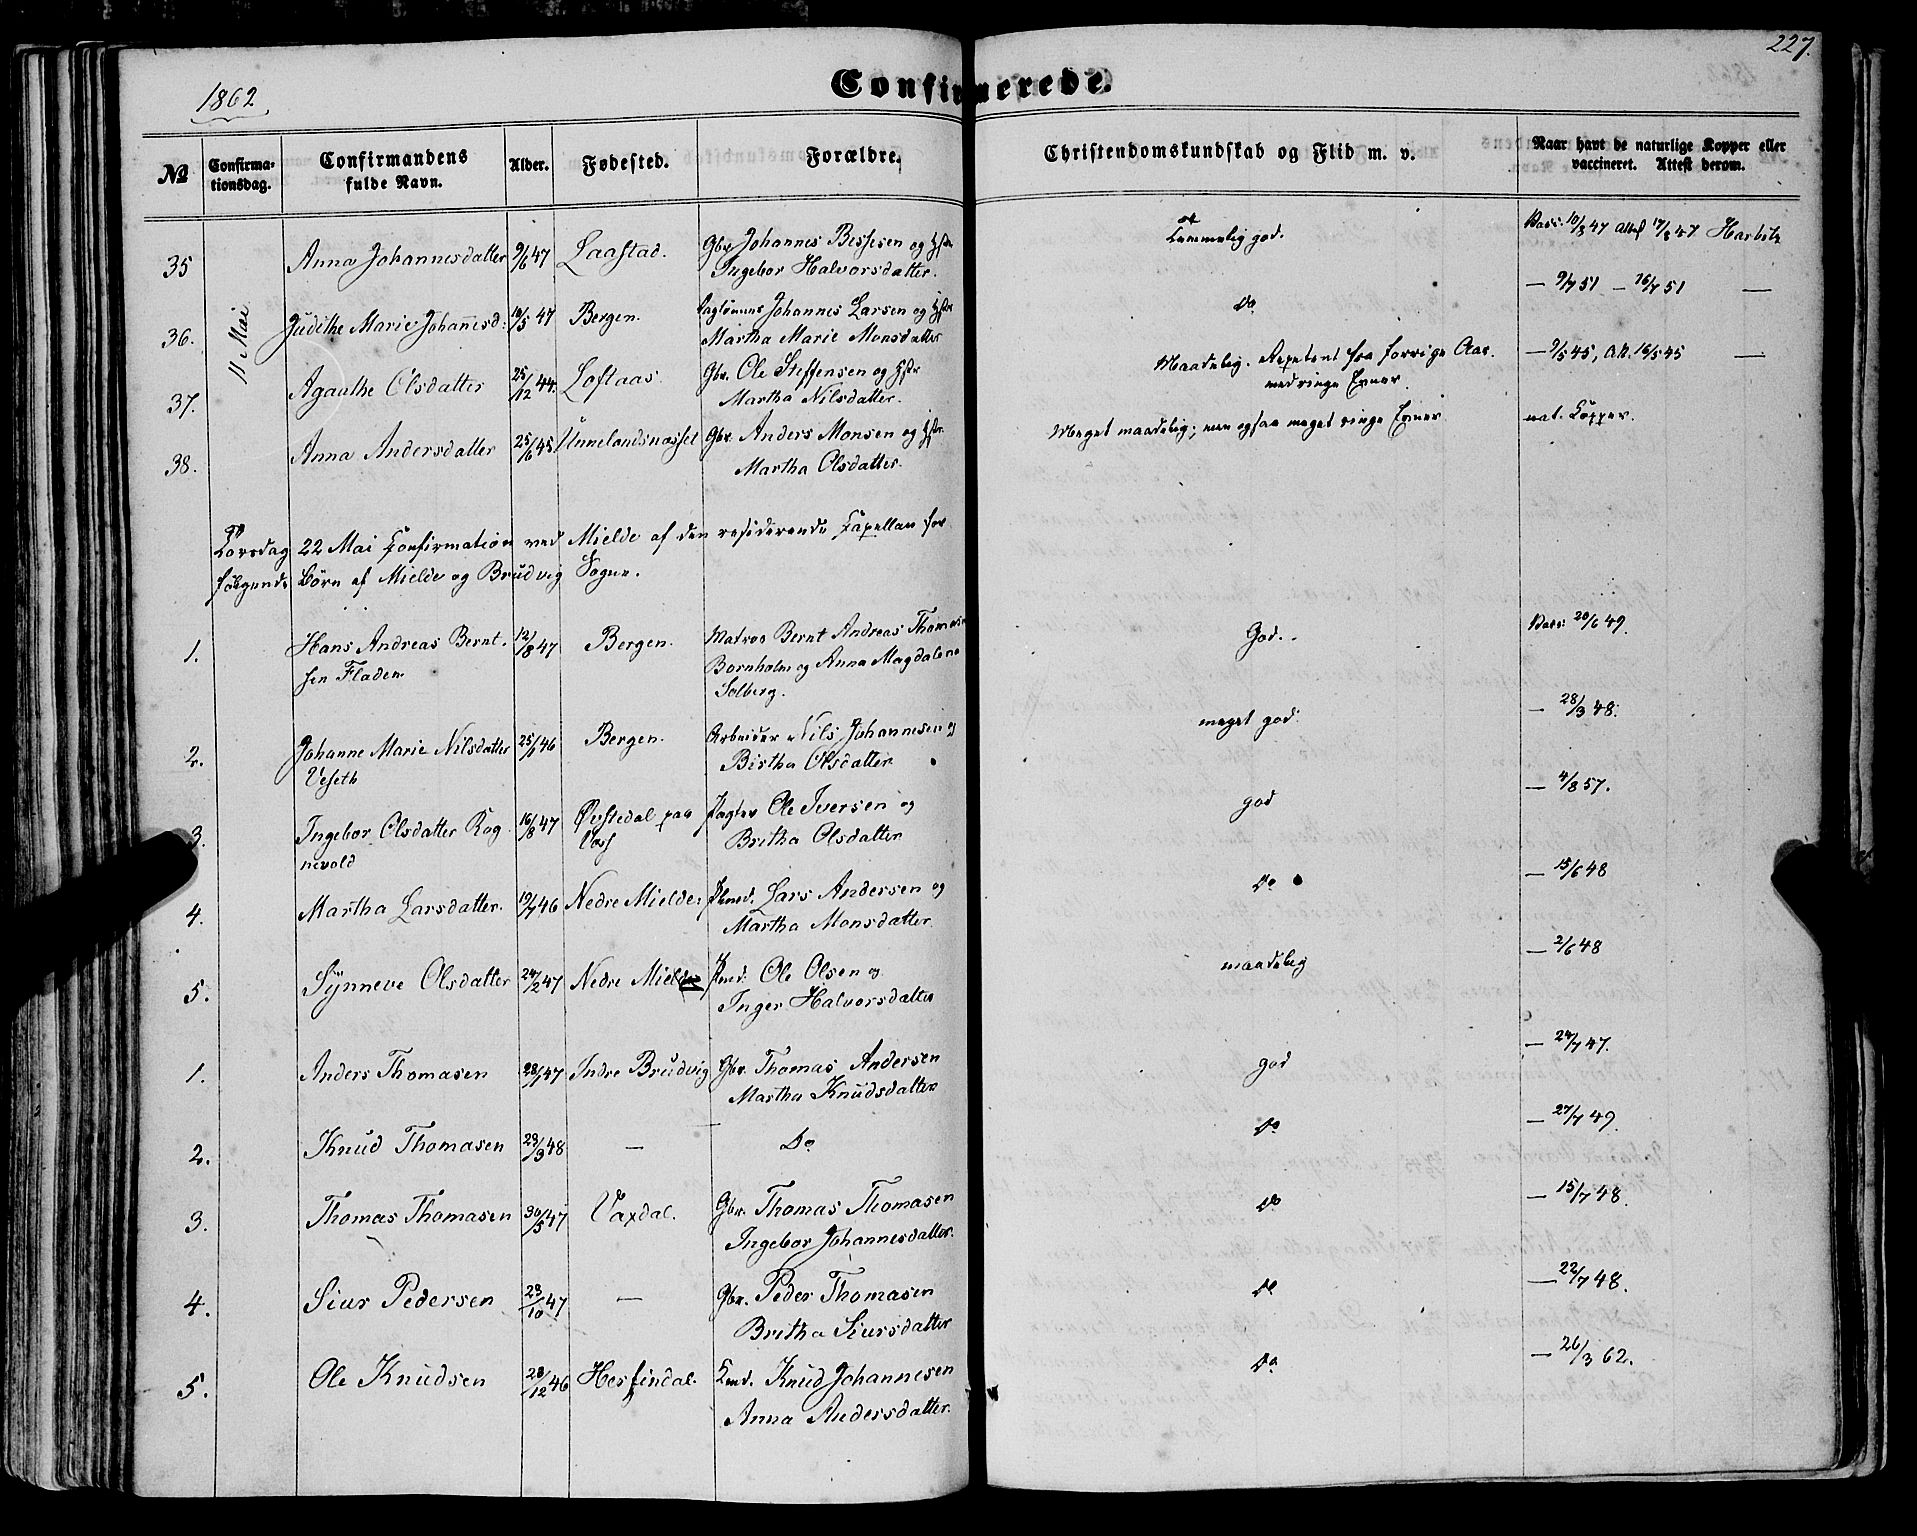 227.
1862
Confirmerede.
No Confirmationsdag. Confirmandens fulde Navn. Alder. Fødested. Forældre. Christendomskundskab og Flid m. v. Naar havt de naturlige Kopper eller vaccineret. Attest derom.
11 Mai
35 Anna Johannesdatter 9/6 47 Laastad. Gbr. Johannes Bessesen og Hstr Ingebor Halvorsdatter. Temmelig god. Vacc: 10/8 47 Attest 17/8 47 Harbitz
36. Judithe Marie Johannesd: 10/5 47 Bergen. Johannes Larsen og Hstr Martha Marie Monsdatter Do — 9/7 51 — 16/7 51 —
37. Agaathe Olsdatter 25/12 44. Loftaas. Gbr. Ole Steffensen og Hstr Martha Nilsdatter. Maadelig. Repetent fra forrige Aar. med ringe Evner. — 9/5 45, A.R. 16/5 45 —
38. Anna Andersdatter 25/6 45 Unnelandsnæsset Gbr. Anders Monsen og Hstr. Martha Olsdatter. Meget maadelig; men ogsaa meget ringe Evner nat. Kopper.
Torsdag 22 Mai Confirmation ved Mielde af den residerende Capellan for
følgende Børn af Mielde og Brudvig Sogne.
1. Hans Andreas Berntsen Fladen 12/8 47 Bergen. Matros Bernt Andreas Thomasen Bornholm og Anna Magdalene Solberg. God. Vacc: 20/6 49.
2. Johanne Marie Nilsdatter Veseth 25/1 46 Bergen. Arbeider Nils Johannesen og Birtha Olsdatter meget god. — 28/3 48.
3. Ingebor Olsdatter Rognevold 16/8 47 Øvstedal paa Voss Ole Iversen og Britha Olsdatter god — 4/8 57.
4. Martha Larsdatter. 19/7 46 Nedre Mielde Lars Andersen og Martha Monsdatter. Do — 15/6 48
5. Synneve Olsdatter 24/2 47 Nedre Mielde Ole Olsen og Inger Halvorsdatter maadelig — 2/6 48
1. Anders Thomasen 28/1 47 Indre Brudvig Gbr. Thomas Andersen Martha Knudsdatter god — 24/7 47.
2. Knud Thomasen 23/3 48 — Do Do — 27/7 49.
3. Thomas Thomasen 30/5 47 Vaxdal. Gbr. Thomas Thomasen Ingebor Johannesdatter. Do — 15/7 48.
4. Siur Pedersen 23/10 47 — Gbr. Peder Thomasen Britha Siursdatter Do — 22/7 48.
5. Ole Knudsen 28/12 46 Hesfindal. Knud Johannesen Anna Andersdatter. Do — 26/3 62.